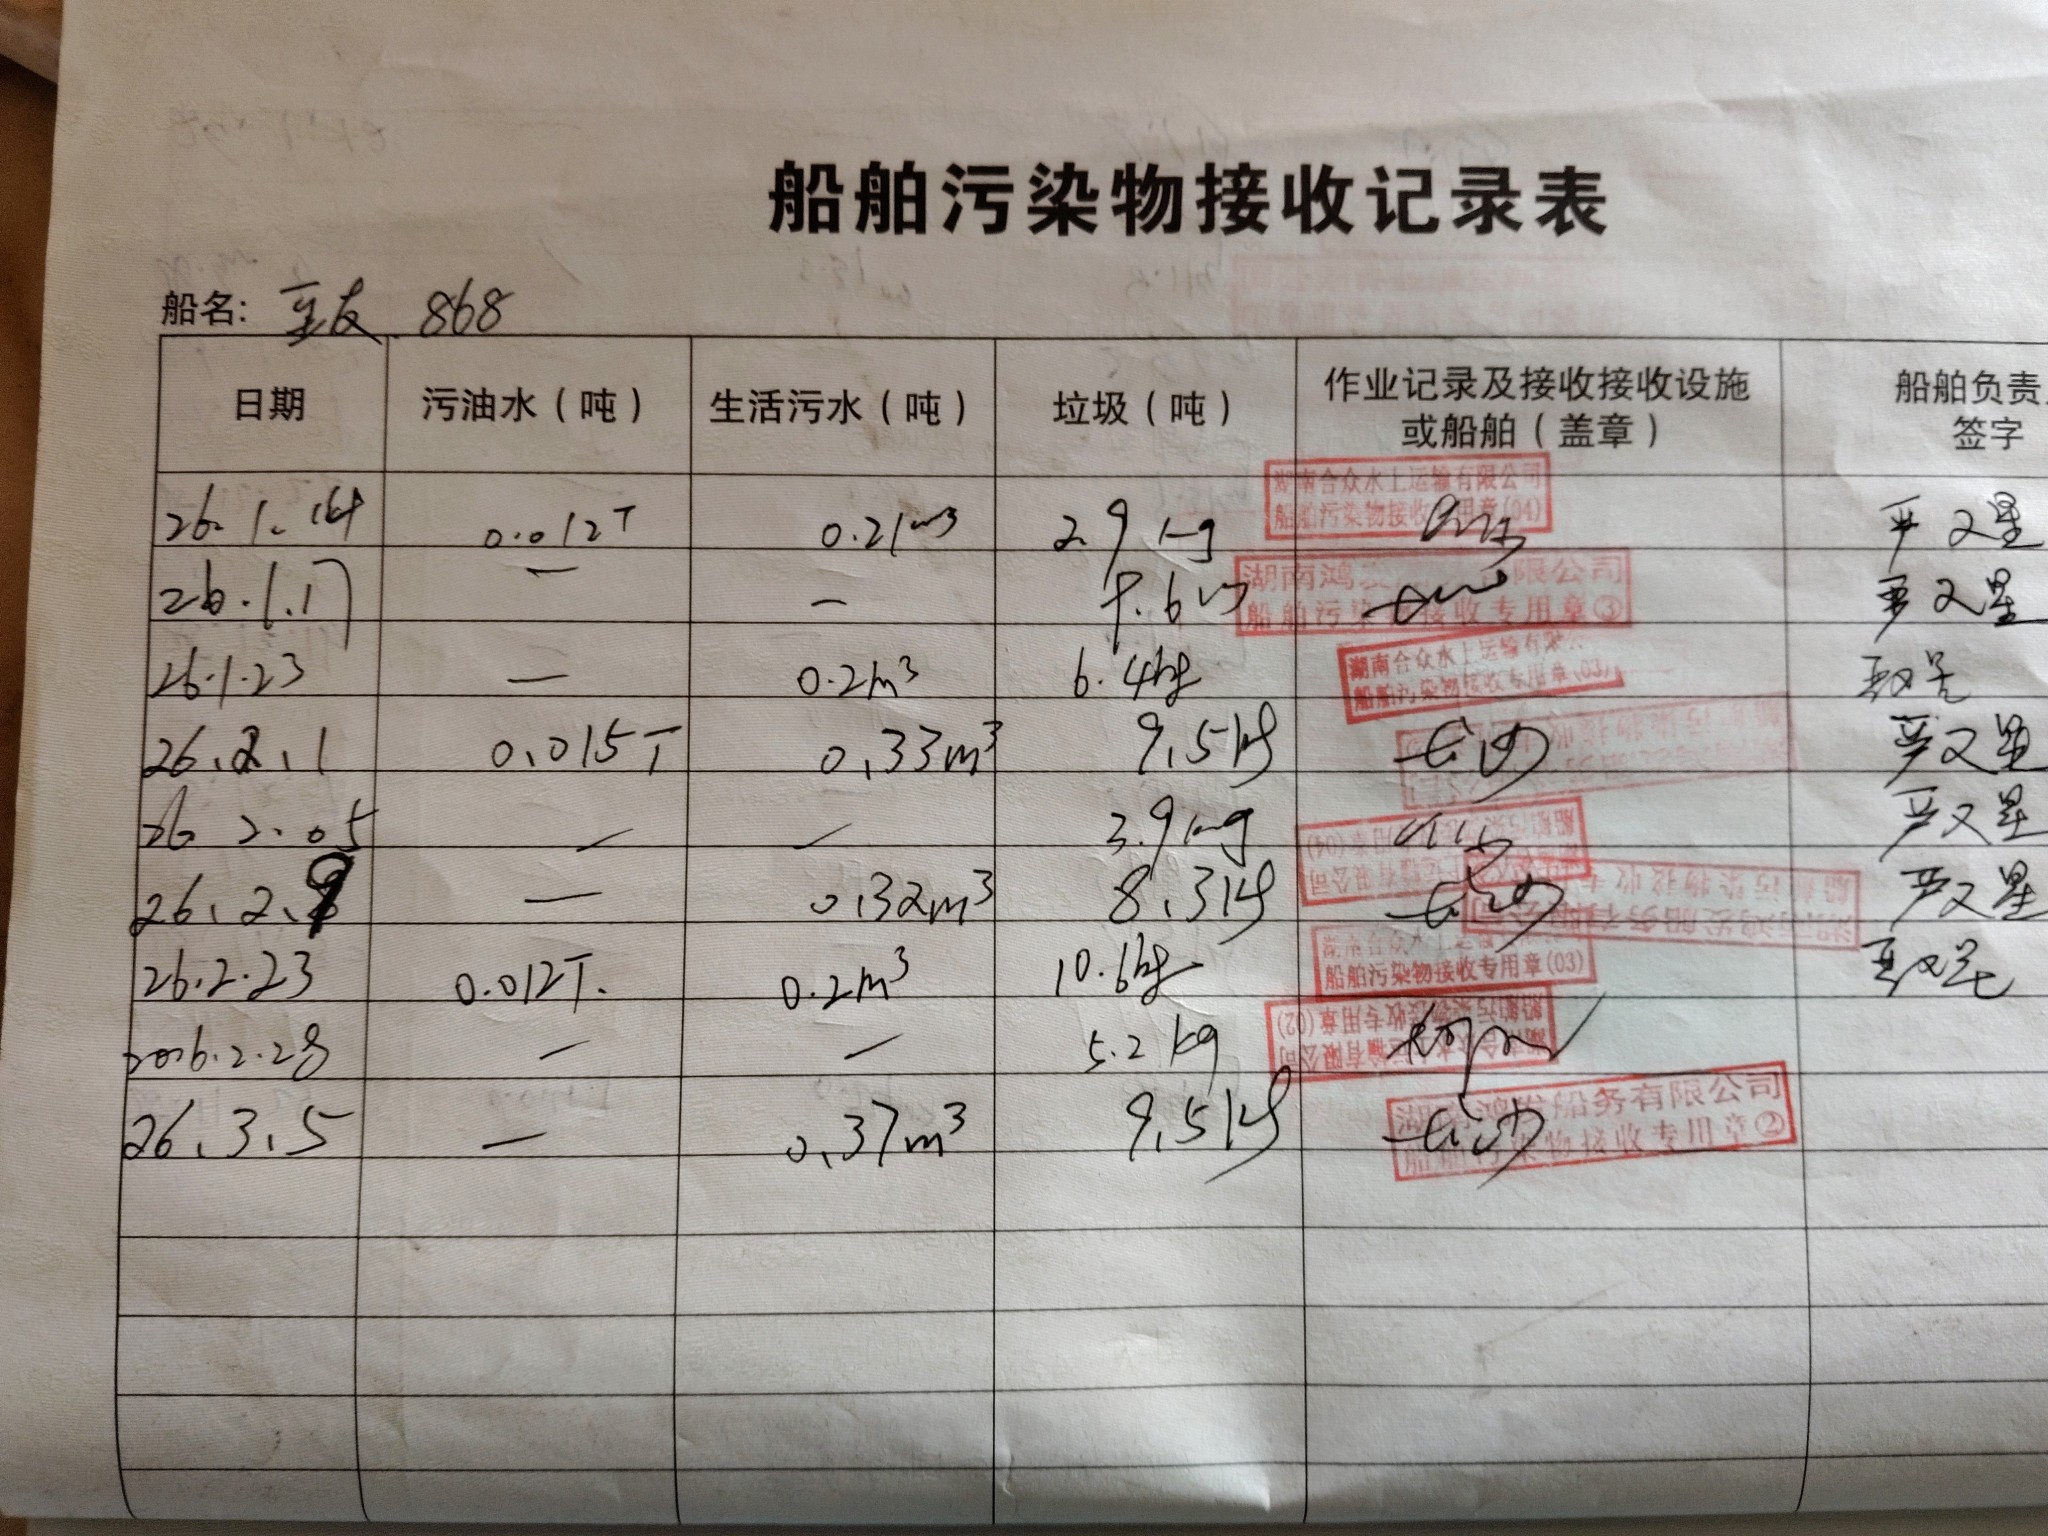 船舶污染物接收记录表
船名: 868
日期 污油水（吨） 生活污水（吨） 垃圾（吨） 作业记录及接收接收设施或船舶（盖章） 船舶负责 签字
26.1.14 0.012T 0.21m³ 2.9kg 湖南合众水上运输有限公司 船舶污染物接收专用章(04) 严又星
26.1.17 — — 湖南鸿 有限公司 船舶污染物接收专用章③ 严又星
26.1.23 — 0.2m³ 6.4kg 湖南合众水上运输有限公 船舶污染物接收专用章(03)
26.2.1 0.015T 0.33m³ 9.5kg 长沙 严又星
26 2.05 — — 3.9kg 专用章(04) 严又星
26.2.9 — 0.32m³ 8.3kg 长沙 严又星
26.2.23 0.012T. 0.2m³ 10.6kg 湖南合众水上 船舶污染物接收专用章(03)
2026.2.28 — — 5.2kg 船舶污染物接收专用章(02)
26.3.5 — 0.37m³ 9.5kg 长沙 船务有限公司 船舶污染物接收专用章②